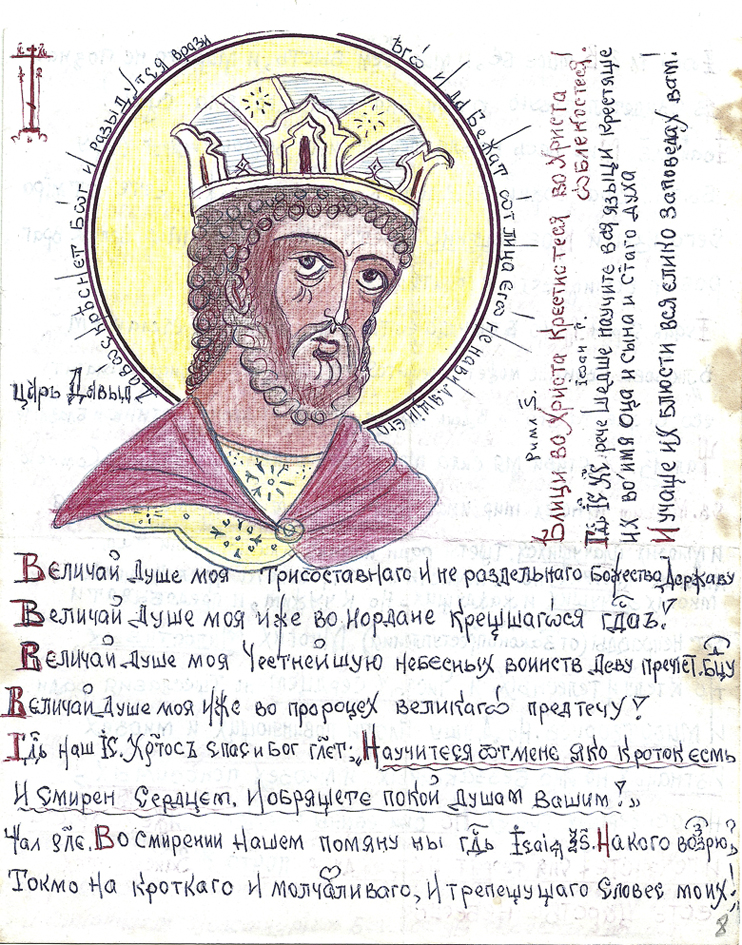 Да воскреснет Бог и разыдутся врази
Его и да бежат от лица его ненавидящии его
царь Давыд
Елици во Христа Крестистеся во Христа
облекостеся!
Римл. ѕ҃.
Гдь І҃с Хс рече Шадше научите вся языци Крестяще
их во имя Оца и сына и стаго духа
И учаще их блюсти вся елико заповедах вам!
Величай Душе моя Трисоставнаго и не раздельнаго Божества Державу
Величай Душе моя Иже во Иордане Крещшагѡся гда҃!
Величай Душе моя Честнейшую небесных воинств Деву пречет. Бцу
Величай Душе моя Иже во пророцех великагѡ предтечу!
Гдь наш І҃с. Хртосъ спас и Бог глет: „Научитеся ѿ мене яко кроток есмь
И смирен сердцем, И обрящете покой душам вашим!„
Ѱал рл҃е. Во смирении нашем помяну ны гдь Ісаіа ѯ҃ѕ. На кого воззрю,
Токмо на кроткаго и молчаливаго, и трепещущаго словес моих!„
8